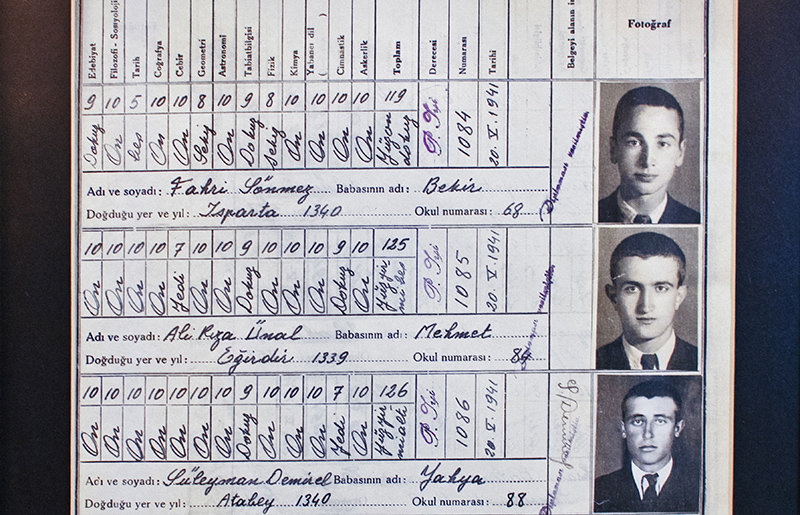 Edebiyat Filozofi - Sosyoloji Tarih Coğrafya Cebir Geometri Astronomi Tabiatbilgisi Fizik Kimya Yabancı dil ( ) Cimnastik Askerlik Toplam Derecesi Numarası Tarihi Belgeyi alanın Fotoğraf
9 10 5 10 10 8 10 9 8 10 10 10 10 119
Dokuz On beş On On Sekiz On Dokuz Sekiz On On On On P. İyi 1084 20.V.1941
Adı ve soyadı: Fahri Sönmez Babasının adı: Bekir
Doğduğu yer ve yıl: Isparta 1340 Okul numarası: 68
10 10 10 10 7 10 10 9 10 10 10 9 10 125
On On On On Yedi On On Dokuz On On On Dokuz On P. İyi 1085 20.V.1941
Adı ve soyadı: Ali Rıza Ünal Babasının adı: Mehmet
Doğduğu yer ve yıl: Eğirdir 1339 Okul numarası:
10 10 10 10 10 10 10 9 10 10 10 7 10 126
On On On On On On On Dokuz On On On Yedi On P. İyi 1086 20.V.1941
Adı ve soyadı: Süleyman Demirel Babasının adı: Yahya
Doğduğu yer ve yıl: Atabey 1340 Okul numarası: 88